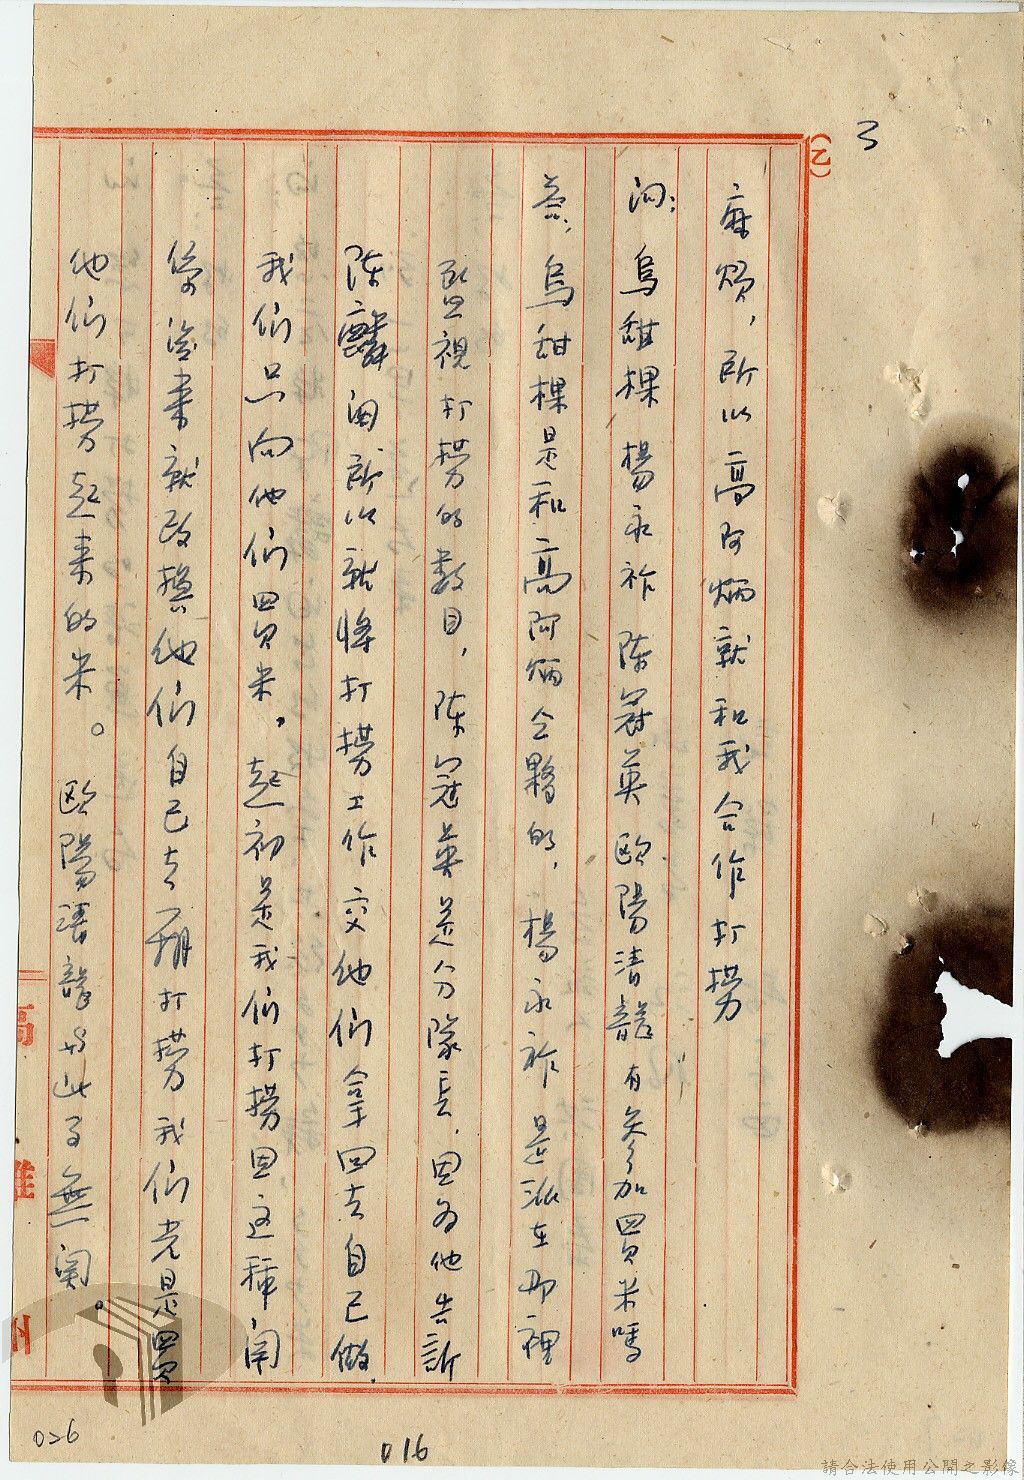 3
(2)
麻煩，所以高阿炳就和我合作打撈
问：烏甜棵 楊永祚 陈冠英 欧陽清龍 有參加買米嗎
答：烏甜棵是和高阿炳合夥的，楊永祚是派在那裡
监視打撈的数目，陈冠英是分隊長，因为他告訴
陈麟 所以就将打撈工作交他们拿回去自己做，
我们只向他们買米，起初是我们打撈因这種
後来就改換他们自己去 打撈我们光是買
他们打撈起来的米。欧陽清龍与此事無関。
高
雄
026
016
請合法使用公開之影像